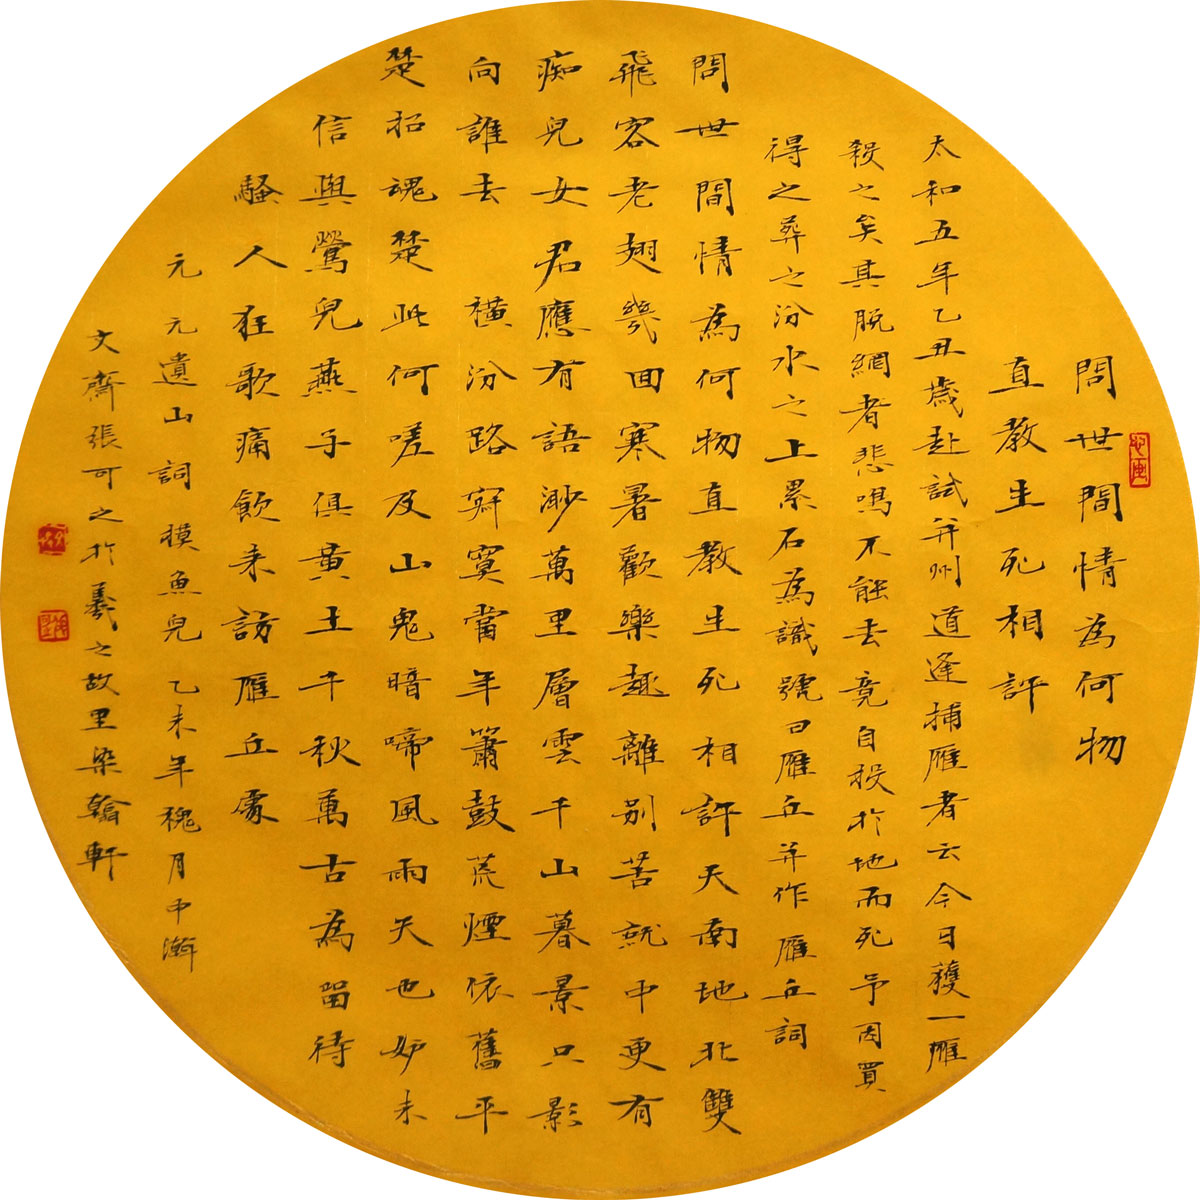 問世間情為何物
直教生死相許
太和五年乙丑歲赴試并州道逢捕雁者云今日獲一雁
殺之矣其脫網者悲鳴不能去竟自投於地而死予因買
得之葬之汾水之上累石為識號曰雁丘并作雁丘詞
問世間情為何物直教生死相許天南地北雙
飛客老翅幾回寒暑歡樂趣離別苦就中更有
痴兒女君應有語渺萬里層雲千山暮景只影
向誰去 橫汾路寂寞當年簫鼓荒煙依舊平
楚招魂楚些何嗟及山鬼暗啼風雨天也妒未
信與鶯兒燕子俱黃土千秋萬古為留待
騷人狂歌痛飲來訪雁丘處
元元遺山詞摸魚兒乙未年槐月中澣
文齋張可之於羲之故里染翰軒